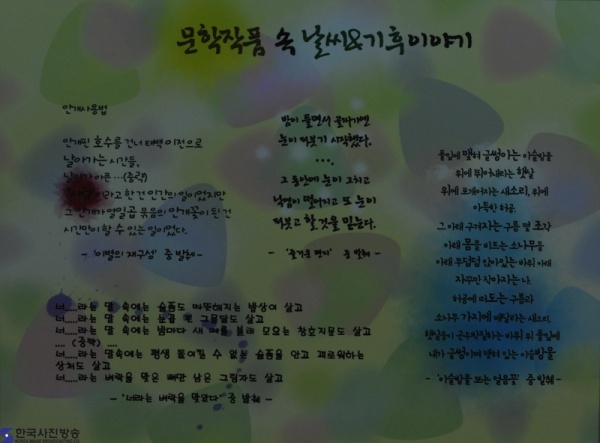 문학작품 속 날씨&기후이야기
안개사용법
안개핀 호수를 건너 태백 이전으로
날아가는 시간들,
날아가 아픈 …(중략)
라고 한 건 인간의 일이었지만
그 안개가 열일곱 묶음의 안개꽃이 된 건
시간만이 할 수 있는 일이었다.
- '이별의 재구성' 중 발췌 -
밤이 들면서 골짜기엔
눈이 퍼붓기 시작했다.
....
그 동안에 눈이 그치고
낙엽이 떨어지고 또 눈이
퍼붓고 할 것을 믿는다.
- '즐거운 편지' 중 발췌 -
풀잎에 맺혀 글썽이는 이슬방울
위에 뛰어내리는 햇살
위에 포개어지는 새소리, 위에
아득한 허공.
그 아래 구겨지는 구름 몇 조각
아래 몸을 비트는 소나무들
아래 무덤덤 앉아있는 바위, 아래
자꾸만 작아지는 나.
허공에 떠도는 구름과
소나무 가지에 매달리는 새소리,
햇살들이 곤두박질하는 바위 위 풀잎에
내가 글썽이며 맺혀 있는 이슬방울
- '이슬방울 또는 얼음꽃' 중 발췌 -
너.....라는 말 속에는 슬픔도 따뜻해지는 밥상이 살고
너.....라는 말 속에는 눈곱 낀 그믐달도 살고
너.....라는 말 속에는 밤마다 새 떼를 불러 모으는 창호지문도 살고
.... (중략) ....
너.....라는 말속에는 평생 들어낼 수 없는 슬픔을 안고 괴로워하는
상처도 살고
너.....라는 벼락을 맞은 뼈만 남은 그림자도 살고
- '너라는 벼락을 맞았다' 중 발췌 -
한국사진방송